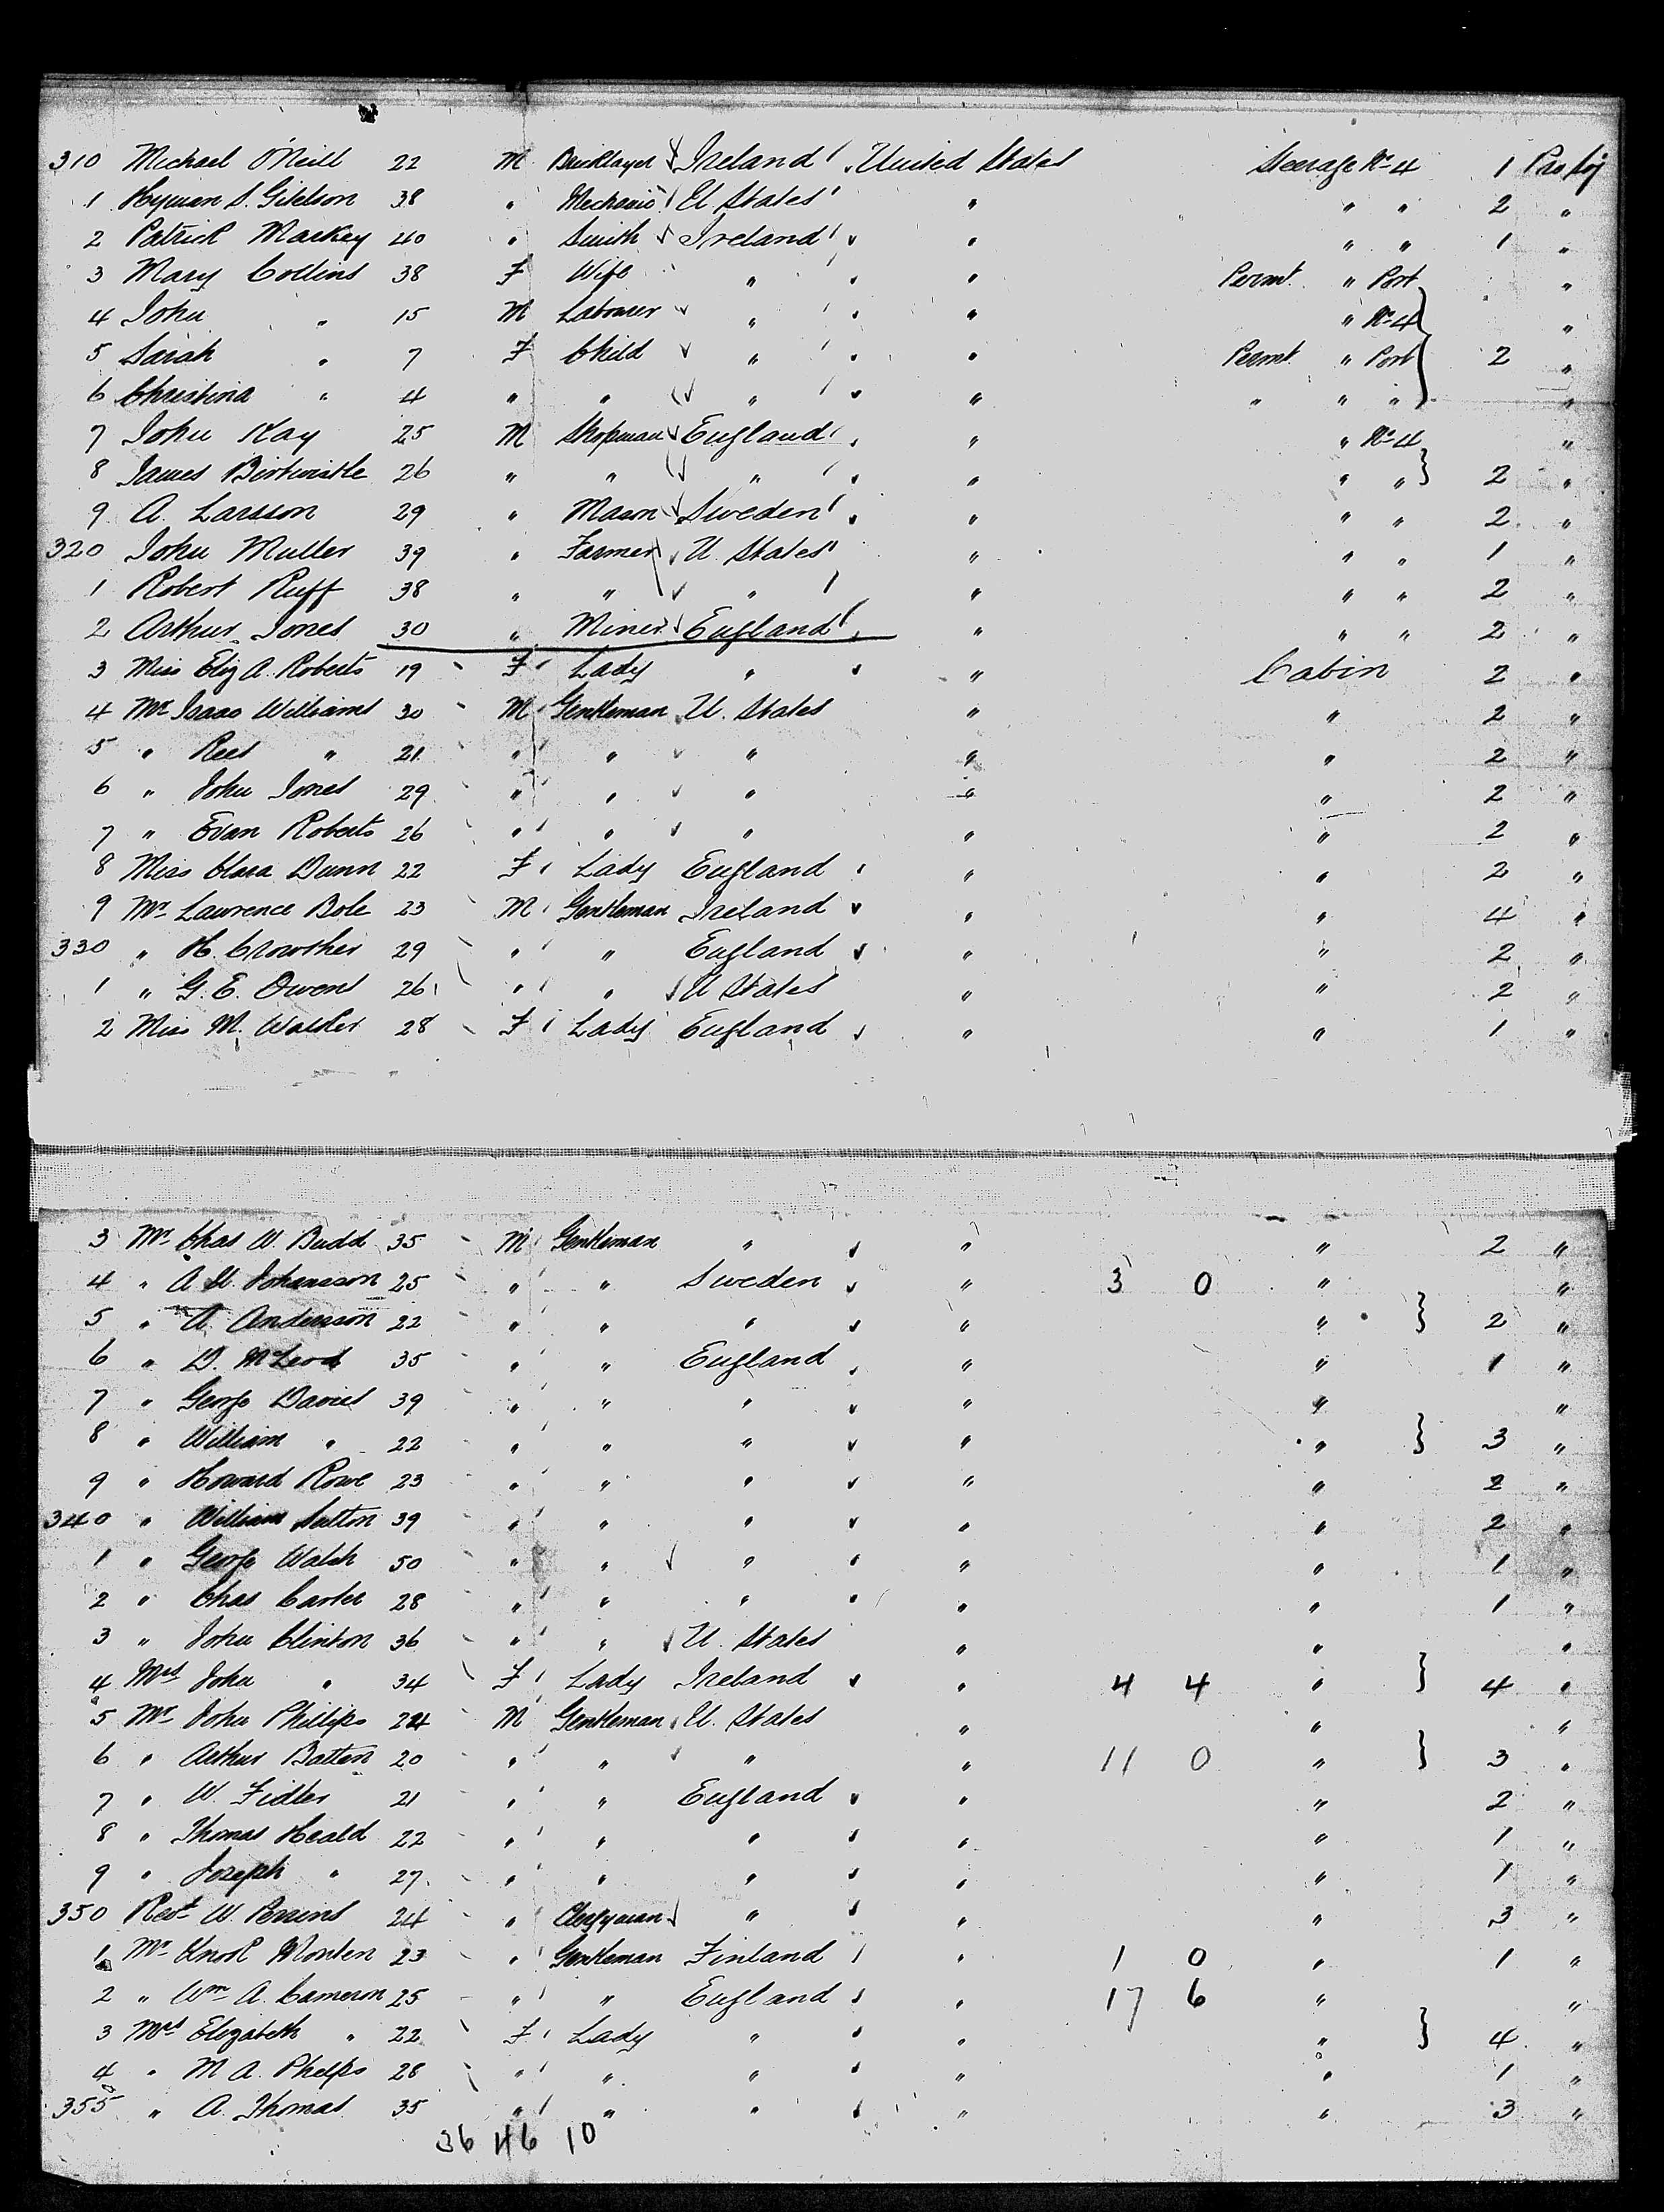 310 Michael O'Neill 22 M Bricklayer Ireland United States Steerage No 4 1 Pro Soj
1 Hyman S. Gitelson 38 " Mechanic U States " " " 2 "
2 Patrick Markey 40 " Smith Ireland " " " 1 "
3 Mary Collins 38 F Wife " " Permt. " Port "
4 John " 15 M Labourer " " " No 4 "
5 Sarah " 7 F Child " " Permt. " Port 2 "
6 Christina " 4 " " " " " " " "
7 John Kay 25 M Shopman England " " No 4 "
8 James Birtwistle 26 " " " " " " 2 "
9 A. Larsson 29 " Mason Sweden " " " 2 "
320 John Muller 39 " Farmer U. States " " " 1 "
1 Robert Ruff 38 " " " " " " 2 "
2 Arthur Jones 30 " Miner England " " " 2 "
3 Miss Eliz A. Roberts 19 F Lady " " Cabin 2 "
4 Mr Isaac Williams 30 M Gentleman U. States " " 2 "
5 " Rees " 21 " " " " " 2 "
6 " John Jones 29 " " " " " 2 "
7 " Evan Roberts 26 " " " " " 2 "
8 Miss Clara Dunn 22 F Lady England " " 2 "
9 Mr Lawrence Bole 23 M Gentleman Ireland " " 4 "
330 " H. Crowther 29 " " England " " 2 "
1 " G. E. Owens 26 " " U States " " 2 "
2 Miss M. Walker 28 F Lady England " " 1 "
3 Mr Chas W. Budd 35 M Gentleman " " " 2 "
4 " A Johansson 25 " " Sweden " 3 0 " "
5 " A. Anderson 22 " " " " " 2 "
6 " D. McLeod 35 " " England " " 1 "
7 " George Davies 39 " " " " " "
8 " William " 22 " " " " " 3 "
9 " Howard Rowe 23 " " " " " 2 "
340 " William Sutton 39 " " " " " 2 "
1 " George Walsh 50 " " " " " 1 "
2 " Chas Carter 28 " " " " " 1 "
3 " John Clinton 36 " " U. States " " "
4 Mrs John " 34 F Lady Ireland " 4 4 " 4 "
5 Mr John Phillips 24 M Gentleman U. States " " "
6 " Arthur Batten 20 " " " " 11 0 " 3 "
7 " W. Fidler 21 " " England " " 2 "
8 " Thomas Heald 22 " " " " " 1 "
9 " Joseph " 27 " " " " " 1 "
350 Revd W. Perrins 24 " Clergyman " " " 3 "
1 Mr Knool Monten 23 " Gentleman Finland " 1 0 " 1 "
2 " Wm A. Cameron 25 " " England " 17 6 " "
3 Mrs Elizabeth " 22 F Lady " " " 4 "
4 " M A. Phelps 28 " " " " " 1 "
355 " A. Thomas 35 " " " " " 3 "
36 46 10